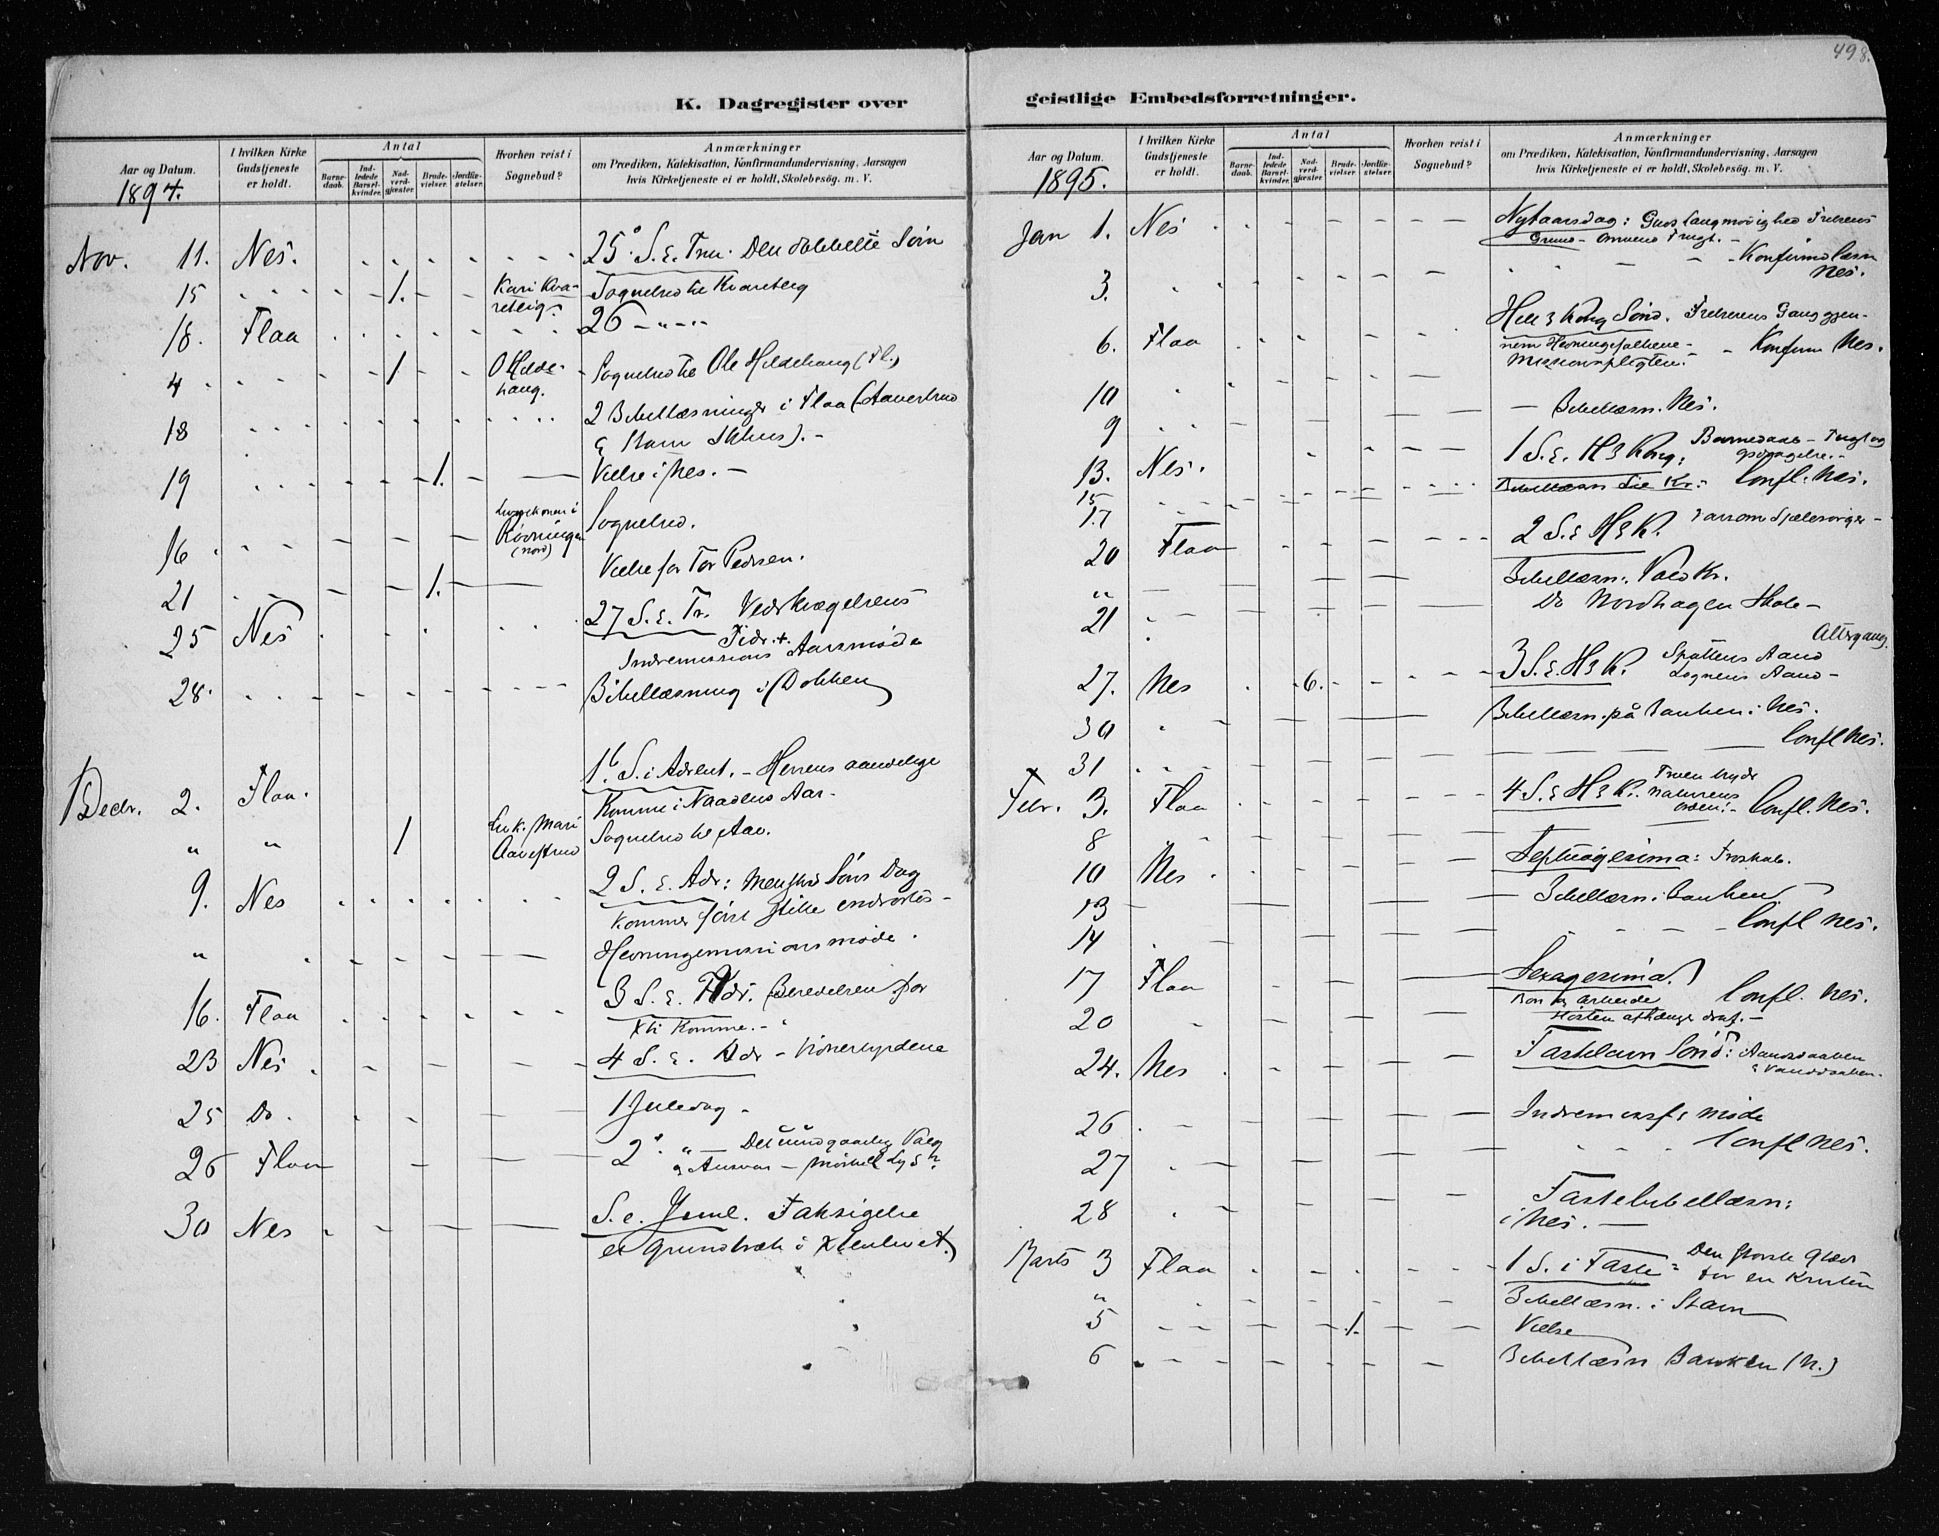 498.
K. Dagregister over
geistlige Embedsforretninger.
Aar og Datum.
1894.
I hvilken Kirke
Gudstjeneste
er holdt.
Antal
Barne-
daab.
Ind-
ledede
Barsel-
kvinder.
Nad-
verd-
gjæster.
Brude-
vielser.
Jordfæ-
stelser.
Hvorhen reist i
Sognebud?
Anmærkninger
om Prædiken, Katekisation, Konfirmandundervisning, Aarsagen
hvis Kirketjeneste ei er holdt, Skolebesøg. m. V.
Nov. 11. Nes. 25 S. e. Trin. Den dobbelte
15 1. Kari Kva- Sognebud til
18. Flaa 26
4 1 O Hilde- Sognebud til Ole Hildehaug (Fl.)
haug.
18 2 Bibellæsninger i Flaa (Aavestrud
& Stam Skhus).
19 1. Vielse i Nes. —
16 Sognebud.
(nord)
21 1. Vielse for Tor Pedersen.
25 Nes 27 S. e. Tr. Vederkvægelsens
Tider. +
Indremissions Aarsmøde
28. Bibellæsning i Dokken
Decbr. 2. Flaa. 1 S. i Advent. — Herrens aandelige
Komme i Naadens Aar.
" " 1 Mari Sognebud til Aav.
Aavestrud
9. Nes 2 S. e. Adv: Menskes Søns Dag
Kommer først stille
" Hedningemissionsmøde.
16. Flaa 3 S. e. Adv. Beredelsen for
Xti Komme. —
23 Nes 4 S. e. Adv —
25 Do. 1 Juledag —
26 Flaa 2 " — Det uundgaaelig Valg
& Ansvar —
30 Nes S. e. Juul. Taksigelse
er Grundtræk i
Aar og Datum.
1895.
I hvilken Kirke
Gudstjeneste
er holdt.
Antal
Barne-
daab.
Ind-
ledede
Barsel-
kvinder.
Nad-
verd-
gjæster.
Brude-
vielser.
Jordfæ-
stelser.
Hvorhen reist i
Sognebud?
Anmærkninger
om Prædiken, Katekisation, Konfirmandundervisning, Aarsagen
hvis Kirketjeneste ei er holdt, Skolebesøg. m. V.
Jan 1. Nes Nytaarsdag: Guds Langmodighed Frelsens
Grund —
3. Konfirm
Nes.
6. Flaa Hell 3 Kong Sønd. Frelserens Gang gjen-
nem Hedningefolkene —
Missionspligten. — Konfirm Nes.
10
9 — Bibellæsn. Nes.
13. Nes. 1 S. e. H 3 Kong: Barnedaab —
15 Bibellæsn Confl. Nes.
17
20 Flaa 2 S. e H 3 K. Sjælesørger —
" Bibellæsn:
21 Do Nordhagen Skole —
Altergang.
27. Nes 6. 3 S. e. H 3 K. Spottens Aand
Løgnens Aand —
30 Bibellæsn. på Banken i Nes.
31 Confl Nes.
Febr. 3. Flaa 4 S. e H 3 K. Troen bryde
Naturens
orden. — Confl. Nes.
8
10 Nes Septuagesima: Troskab.
13 Bibellæsn. i Banken
14 Confl Nes.
17 Flaa Sexagesima.
Bøn og Arbeide Confl. Nes.
20 Høsten afhænger deraf. —
24. Nes Fastelavn Sønd: Aandsdaaben
& Vanddaaben.
26 Indremissf: møde
27 Confl Nes.
28 Fastebibellæsn:
i Nes. —
Marts 3 Flaa 1 S. i Faste: Den største Glæde
for en Kristen
" Bibellæsn. i Stam
5 1. Vielse
6 Bibellæsn Banken (N.)